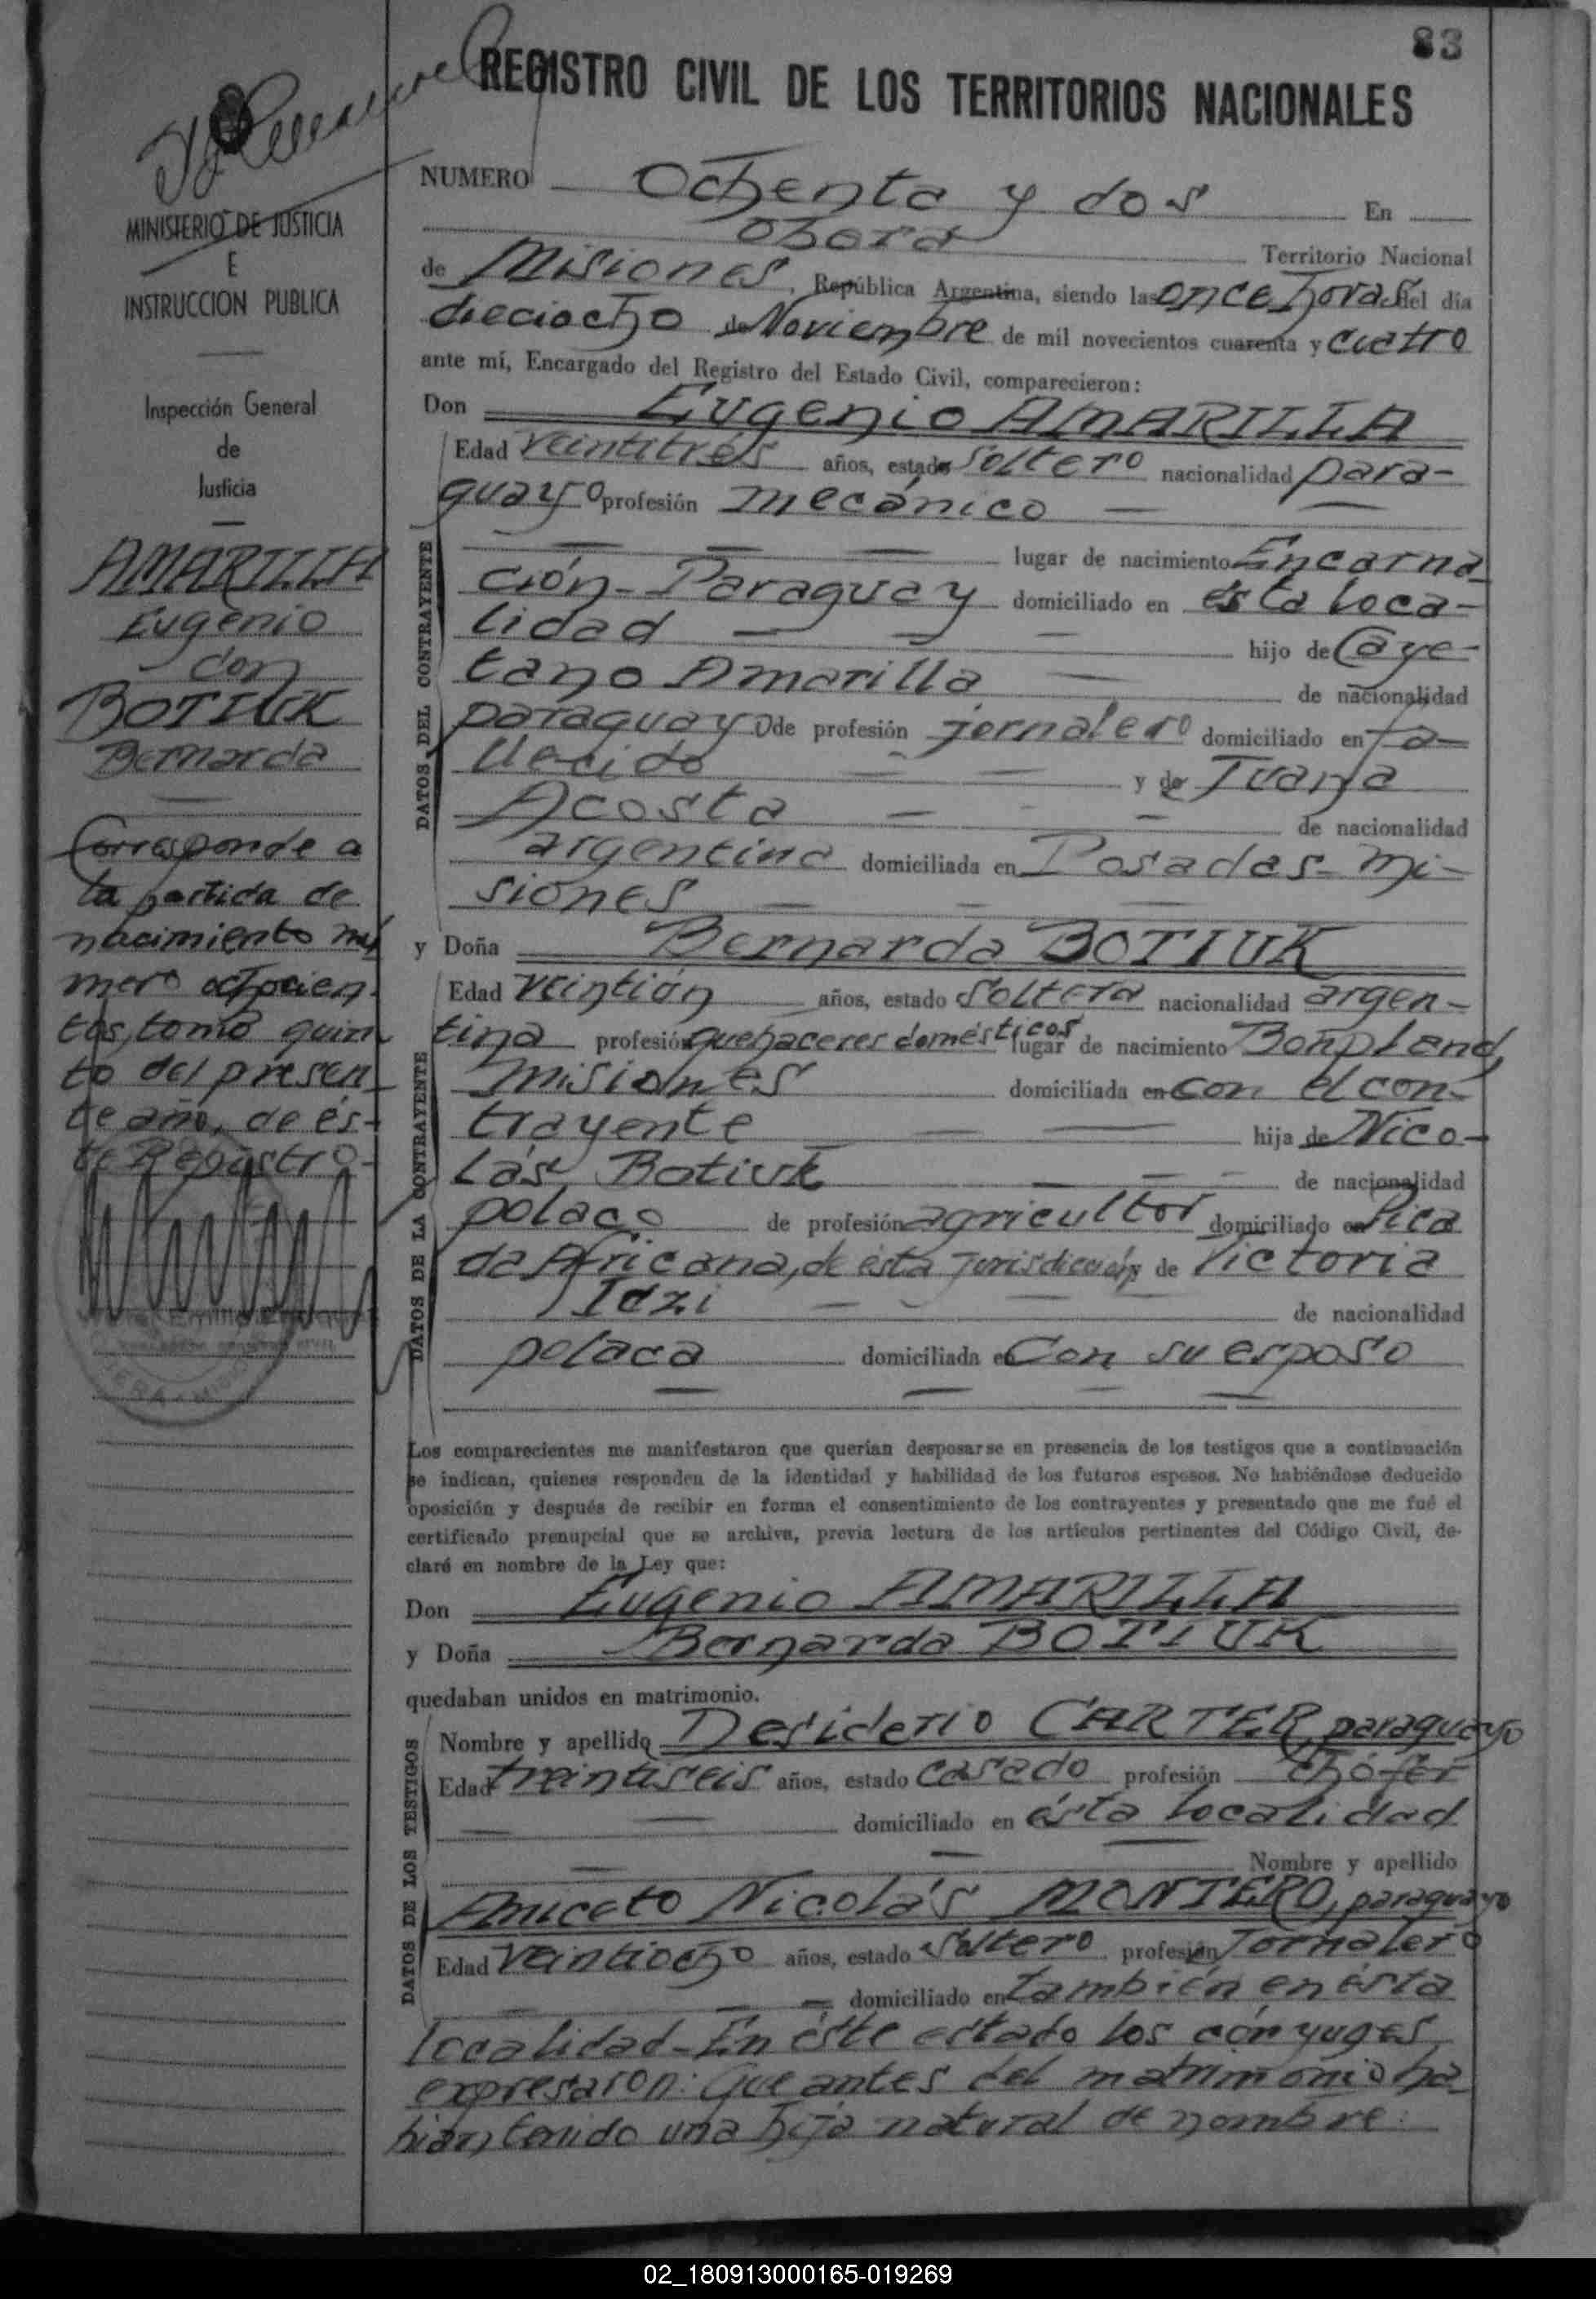 83
REGISTRO CIVIL DE LOS TERRITORIOS NACIONALES
MINISTERIO DE JUSTICIA
E
INSTRUCCION PUBLICA
Inspección General
de
Justicia
AMARILLA
Eugenio
con
BOTIUK
Bernarda
Corresponde a
la partida de
nacimiento nú
mero ochocien-
tos, tomo quin
to del presen
te año, de és-
te Registro-
NUMERO Ochenta y dos En
Oberá Territorio Nacional
de Misiones, República Argentina, siendo las once horas del día
dieciocho de Noviembre de mil novecientos cuarenta y cuatro
ante mí, Encargado del Registro del Estado Civil, comparecieron:
Don Eugenio AMARILLA
Edad veintitrés años, estado soltero nacionalidad para-
guayo profesión mecánico
lugar de nacimiento Encarna
DATOS DEL CONTRAYENTE
ción-Paraguay domiciliado en ésta loca-
lidad hijo de Caye-
tano Amarilla de nacionalidad
paraguayo de profesión jornalero domiciliado en fa-
llecido y de Juana
Acosta de nacionalidad
argentina domiciliada en Posadas-Mi-
siones
y Doña Bernarda BOTIUK
Edad veintiún años, estado soltera nacionalidad argen-
tina profesión quehaceres domésticos lugar de nacimiento Bonpland,
Misiones domiciliada en con el con-
DATOS DE LA CONTRAYENTE
trayente hija de Nico-
lás Botiuk de nacionalidad
polaco de profesión agricultor domiciliado en Pica
da Africana, de ésta jurisdicción y de Victoria
Idzi de nacionalidad
polaca domiciliada en con su esposo
Los comparecientes me manifestaron que querían desposarse en presencia de los testigos que a continuación
se indican, quienes responden de la identidad y habilidad de los futuros esposos. No habiéndose deducido
oposición y después de recibir en forma el consentimiento de los contrayentes y presentado que me fué el
certificado prenupcial que se archiva, previa lectura de los artículos pertinentes del Código Civil, de-
claré en nombre de la Ley que:
Don Eugenio AMARILLA
y Doña Bernarda BOTIUK
quedaban unidos en matrimonio.
Nombre y apellido Desiderio CARTER, paraguayo
Edad treintiseis años, estado casado profesión chófer
domiciliado en ésta localidad
DATOS DE LOS TESTIGOS
Nombre y apellido
Aniceto Nicolás MONTERO, paraguayo
Edad veintiocho años, estado soltero profesión Jornalero
domiciliado en también en ésta
localidad-En éste estado los cónyuges
expresaron: Que antes del matrimonio ha
bían tenido una hija natural de nombre:
02_180913000165-019269